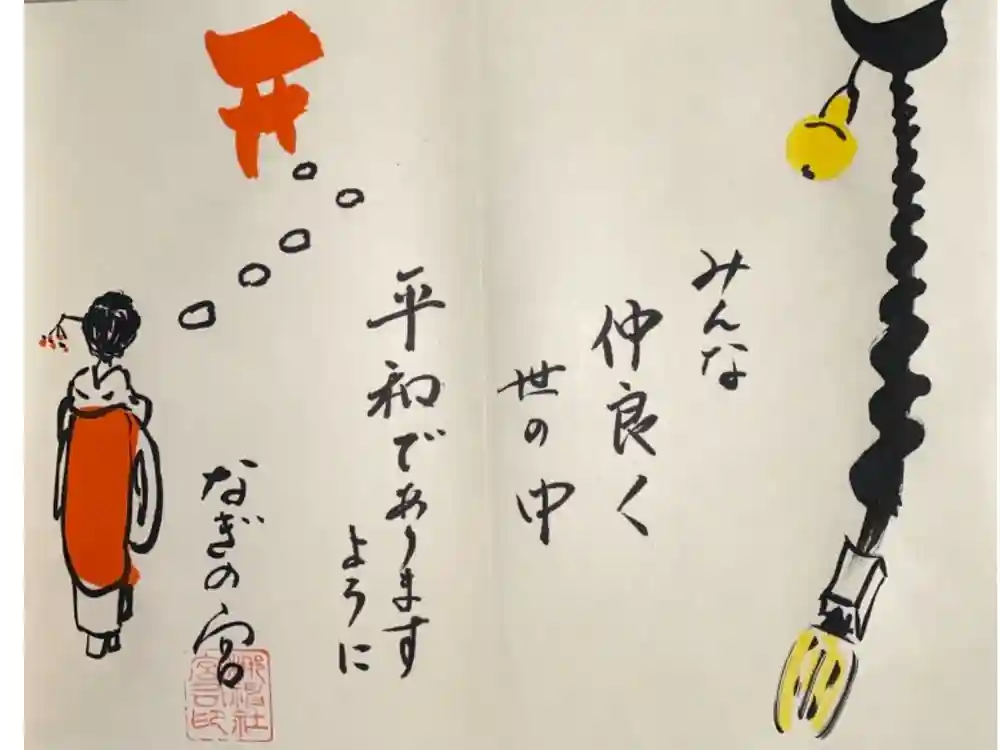 みんな
仲良く
世の中
平和であります
ように
なぎの宮
梛神社
宮司印